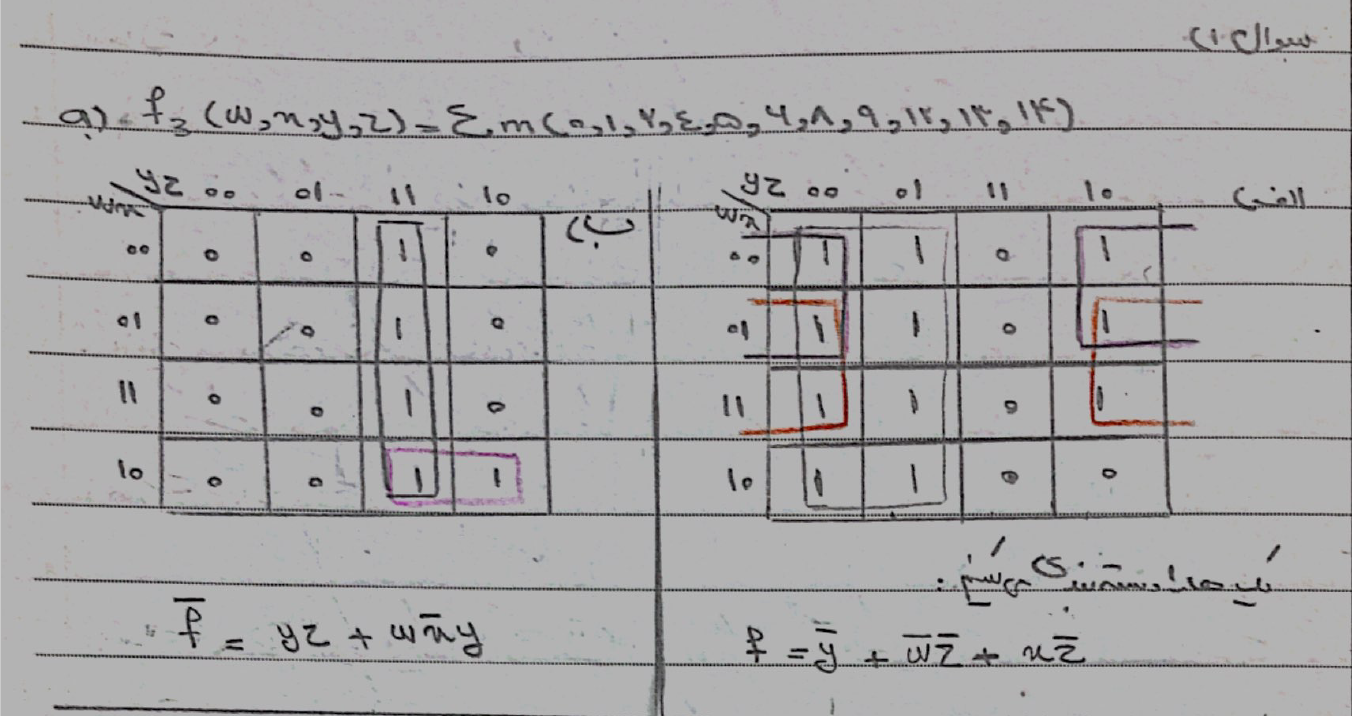 سوال ۱)
a) f₃ (w,x,y,z) = Σ m (۰,۱,۲,٤,۵,۶,۸,۹,۱۲,۱۳,۱۴)
الف)
yz 00 01 11 10
wx
00 1 1 0 1
01 1 1 0 1
11 1 1 0 1
10 1 1 0 0
f = y̅ + w̅z̅ + xz̅
ب)
yz 00 01 11 10
wx
00 0 0 1 0
01 0 0 1 0
11 0 0 1 0
10 0 0 1 1
f̅ = yz + wx̅y